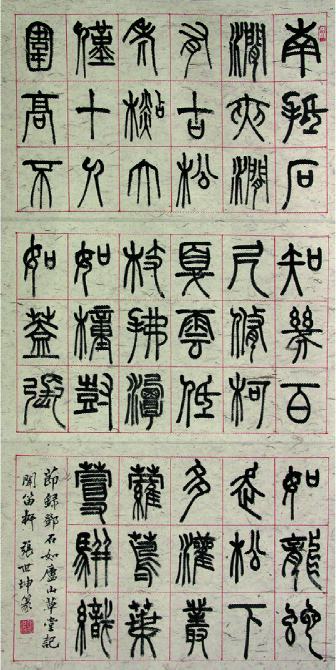 南抵石
澗夾澗
有古松
老檆大
僅十人
圍高不
知幾百
尺脩柯
戛雲低
枝拂潭
如橦尌
如蓋張
如龍蛇
走松下
多灌叢
蘿蔦葉
蔓駢織
節錄鄧石如廬山草堂記
聞笛軒 張世坤篆